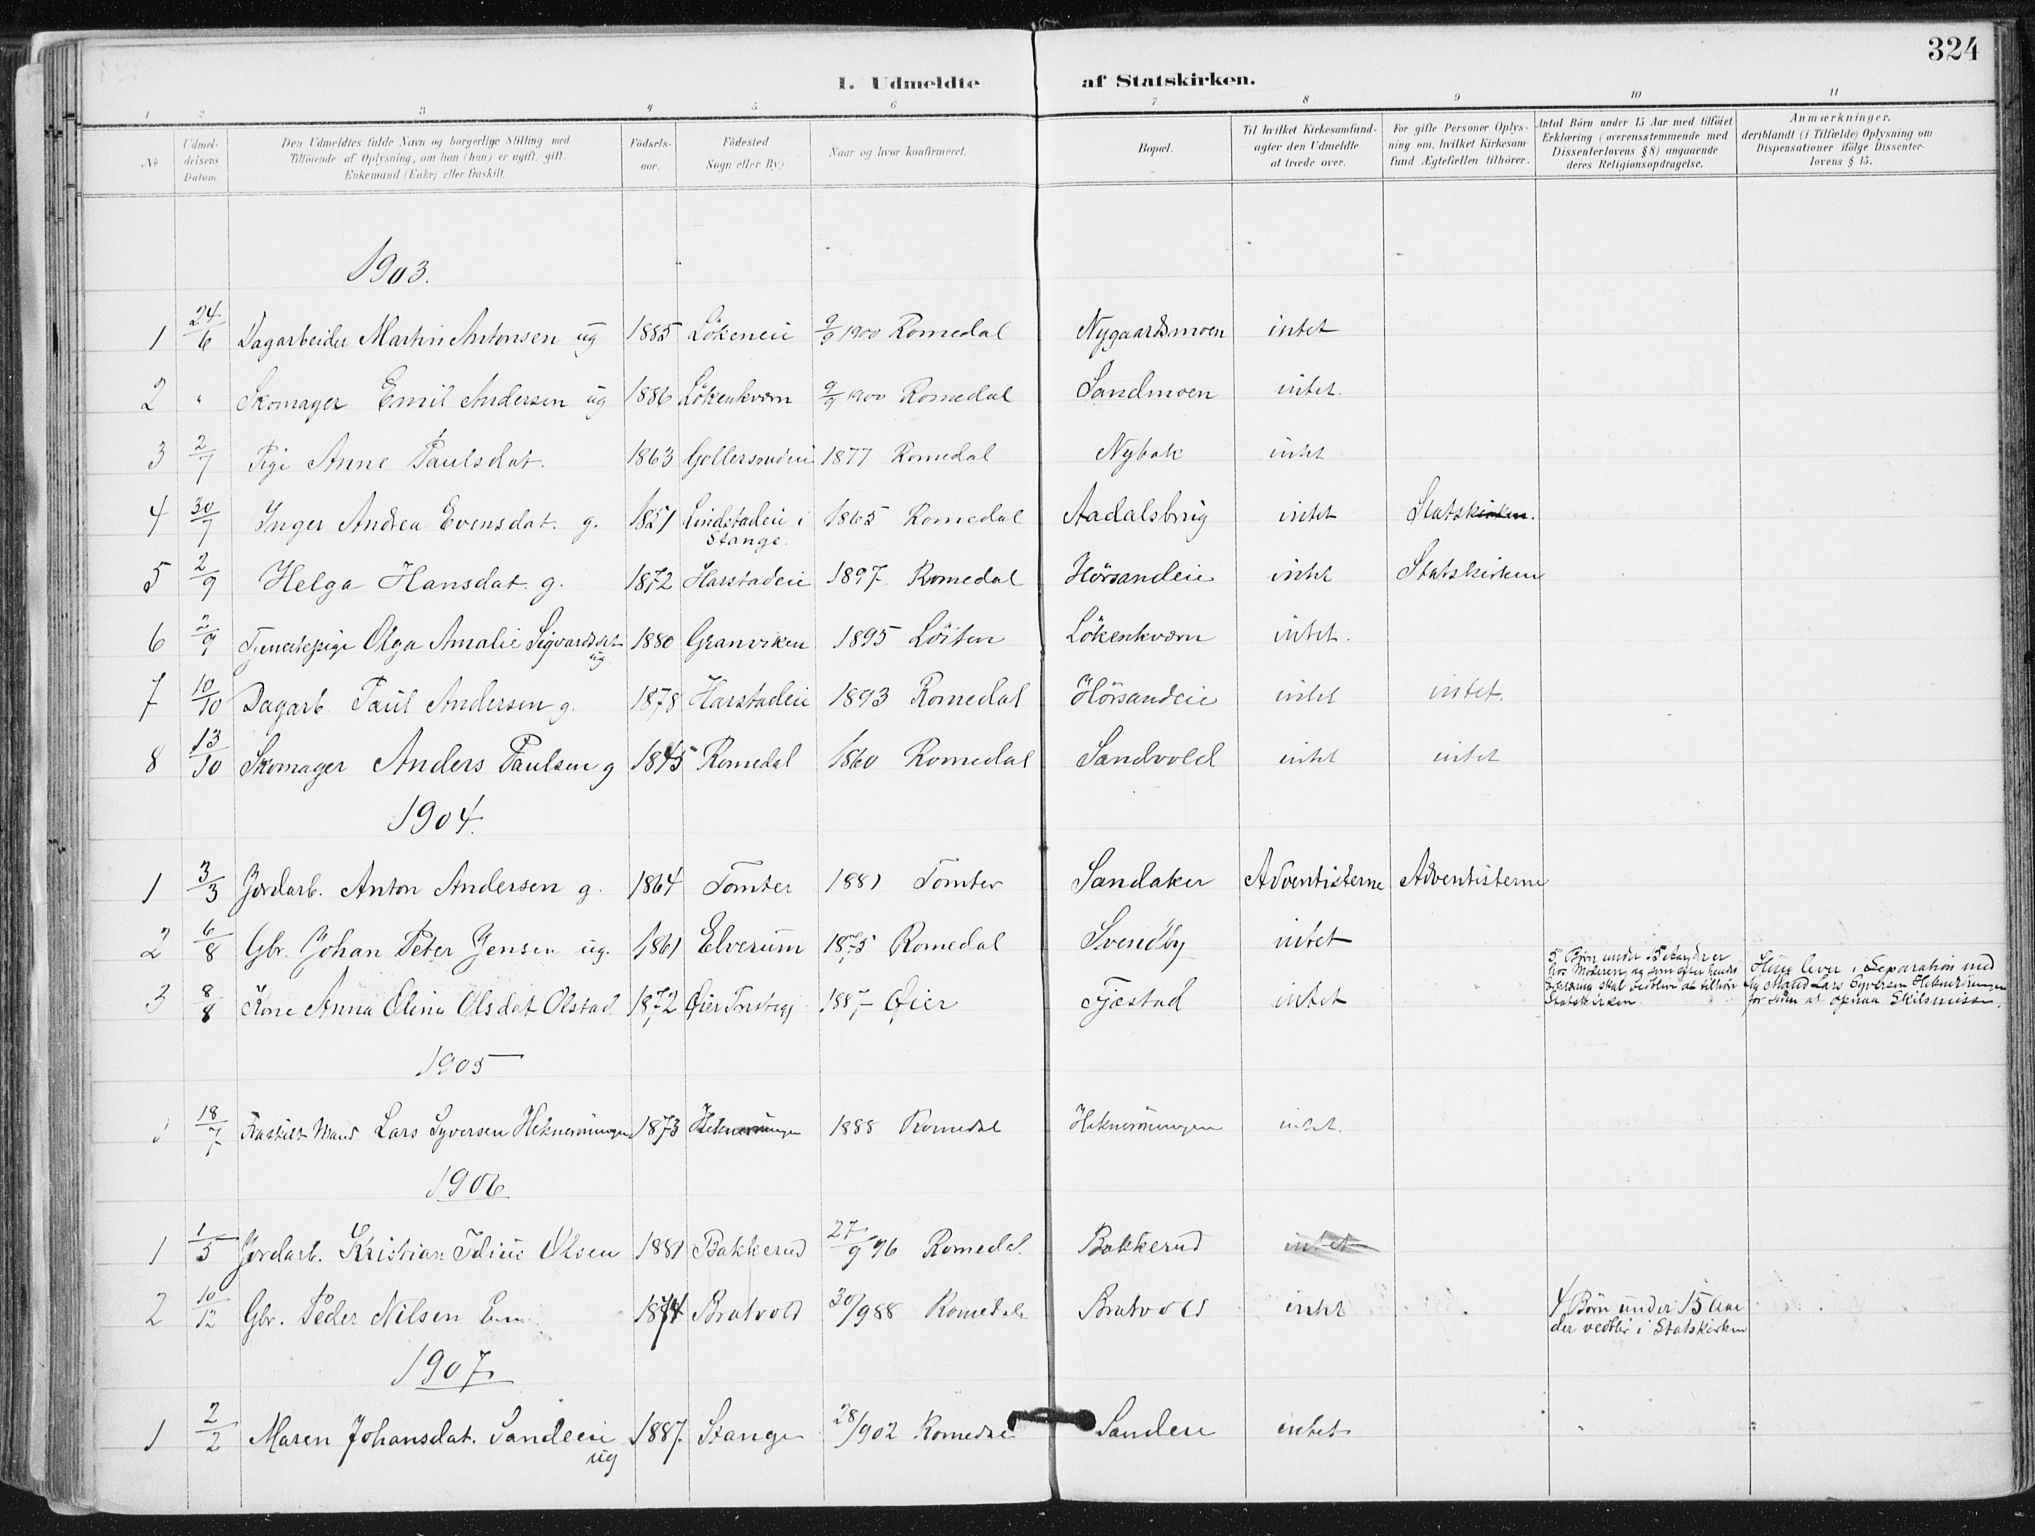 324
1. Udmeldte af Statskirken.
1 2 3 4 5 6 7 8 9 10 11
No
Udmel-
delsens
Datum.
Den Udmeldtes fulde Navn og borgerlige Stilling med
Tilföiende af Oplysning, om han (hun) er ugift, gift,
Enkemand (Enke) eller fraskilt.
Födsels-
aar.
Födested
Sogn eller By)
Naar og hvor konfirmeret.
Bopæl.
Til hvilket Kirkesamfund-
agter den Udmeldte
at træde over.
For gifte Personer Oplys-
ning om, hvilket Kirkesam-
fund Ægtefællen tilhörer.
Antal Börn under 15 Aar med tilföiet
Erklæring (overensstemmende med
Dissenterlovens § 8) angaaende
deres Religionsopdragelse.
Anmærkninger,
deriblandt (i Tilfælde) Oplysning om
Dispensationer ifölge Dissenter-
lovens § 15.
1903.
1 24/6 Dagarbeider Martin Antonsen ug 1885 Lökeneie 9/9 1900 Romedal Nygaardsmoen intet
2 " Skomager Emil Andersen ug 1886 Lökenkværn 9/9 1900 Romedal Sandmoen intet.
3 2/7 Pige Anne Paulsdat. 1863 1877 Romedal Nybak intet
4 30/7 Inger Andrea Evensdat. g. 1851 Lindstadeie i 1865 Romedal Aadalsbrug intet Statskirken.
Stange.
5 2/9 Helga Hansdat. g. 1872 Harstadeie 1897. Romedal Hörsandeie intet Statskirken
6 2/9 Tjenestepige Olga Amalie Sigvardsdat 1880 Granviken 1895 Löiten Lökenkværn intet.
ug.
7 10/10 Dagarb. Paul Andersen g. 1878 Harstadeie 1893 Romedal Hörsandeie intet intet.
8 13/10 Skomager Anders Paulsen g 1845 Romedal 1860 Romedal Sandvold intet intet
1904.
1 3/3 Jordarb. Anton Andersen g. 1864 Tomter 1881 Tomter Sandaker Adventisterne Adventisterne
2 6/8 Gbr. Johan Peter Jensen ug. 1861 Elverum 1875 Romedal Svendby intet
3 8/8 Kone Anna Eline Olsdat Olstad 1872 Öier 1887 Öier Tjæstad intet
5 Börn under 15
hos Moderen, og som efter hendes
skal vedblive at tilhöre
Statskirken
Hun lever i Separation med
sin Mand Lars Syversen Heknerönningen
for siden at opnaa Skilsmisse.
1905
1 18/7 Fraskilt Mand Lars Syversen Heknerönningen 1873 Heknerönningen 1888 Romedal Heknerönningen intet.
1906
1 1/5 Jordarb. Kristian Julius Olsen 1881 Bakkerud 27/9 96 Romedal. Bakkerud intet
2 10/12 Gbr. Peder Nilsen 1874 Bratvold 30/9 88 Romedal Bratvold intet
4 Börn under 15 Aar
der vedblir i Statskirken
1907.
1 2/2 Maren Johansdat. Sandeeie 1887. Stange 28/9 02 Romedal Sandeie intet.
ug